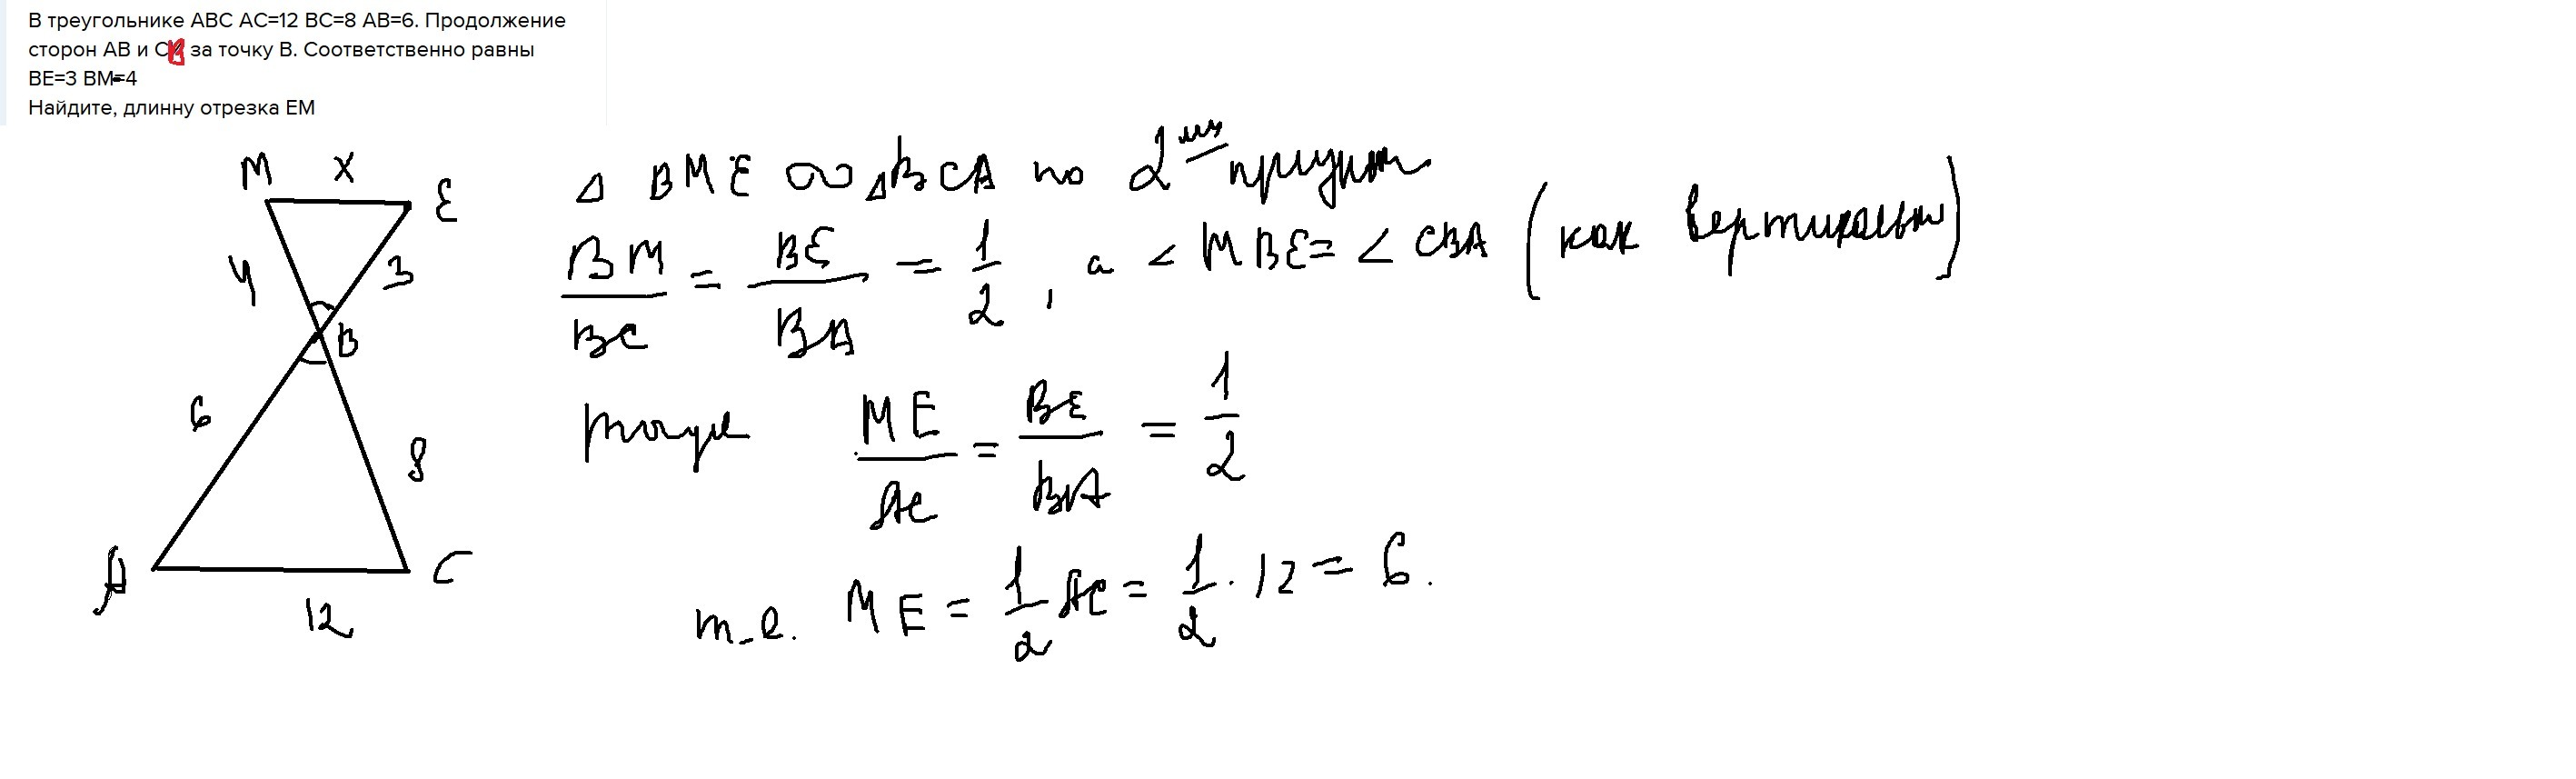 В треугольнике ABC AC=12 BC=8 AB=6. Продолжение
сторон AB и CB за точку B. Соответственно равны
BE=3 BM=4
Найдите, длинну отрезка EM
M x E
4 3
B
6
8
A C
12
Δ BME ∞ ΔBCA по 2
BM/BC = BE/BA = 1/2, а ∠MBE = ∠CBA (как вертикальные)
тогда ME/AC = BE/BA = 1/2
т.е. ME = 1/2 AC = 1/2 · 12 = 6.